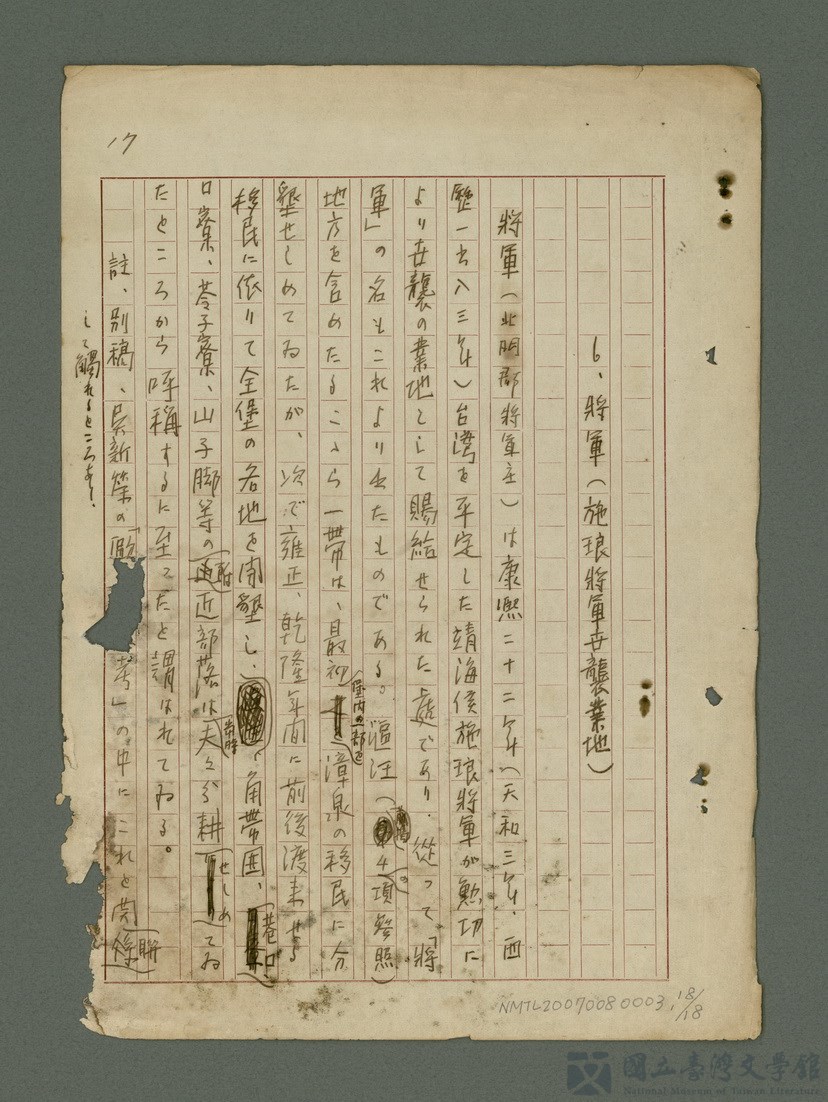 17
6、將軍（施琅將軍世襲業地）
將軍（北門郡將軍庄）は康熙二十二年（天和三年、西
歷一六八三年）台灣を平定した靖海侯施琅將軍が勲功に
より世襲の業地として賜給せられた處であり、從って「將
軍」の名もこれより出たものである。漚汪（前の4項參照）
地方を含めたるこゝら一帶は、最初堡内の一部を漳泉の移民に分
墾せしめてゐたが、次で雍正、乾隆年間に前後渡來せる
移民に依りて全堡の各地を開墾し、角帶囲、巷口、
口寮、苓子寮、山子脚等の附近部落は当時夫々分耕せしめてゐ
たところから呼稱するに至ったと謂はれてゐる。
註、別稿、吳新榮の「 考」の中にこれと関聯
して觸れるところあり、
NMTL20070080003 18/18
國立臺灣文學館
National Museum of Taiwan Literature